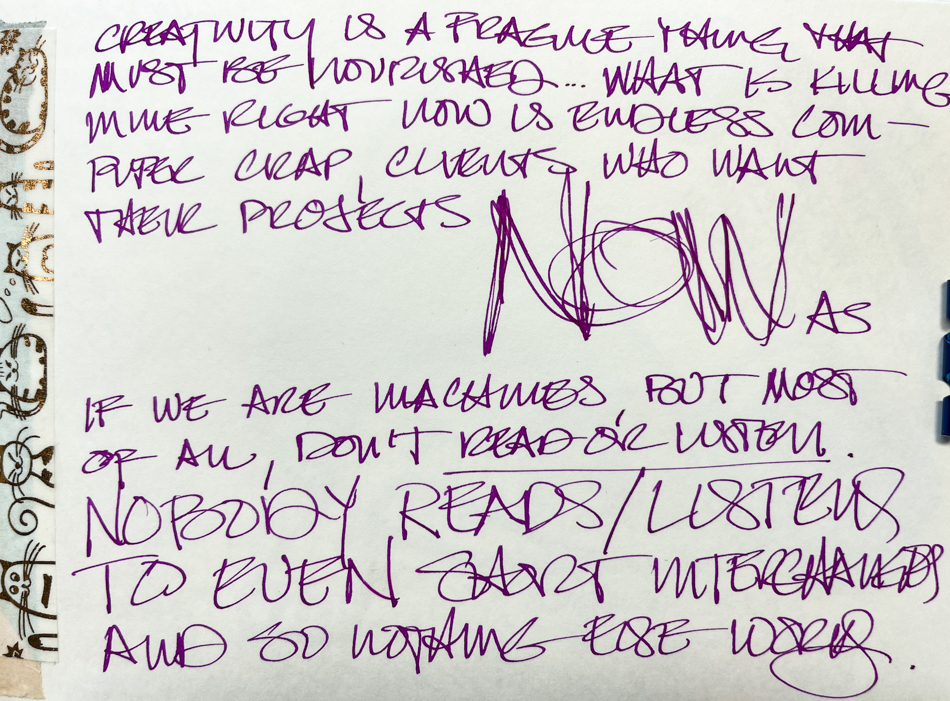 CREATIVITY IS A FRAGILE THING THAT
MUST BE NOURISHED... WHAT IS KILLING
MINE RIGHT NOW IS ENDLESS COM-
PUTER CRAP, CLIENTS WHO WANT
THEIR PROJECTS NOW AS
IF WE ARE MACHINES, BUT MOST
OF ALL, DON'T READ OR LISTEN.
NOBODY READS/LISTENS
TO EVEN START INTERCHANGES
AND SO NOTHING ELSE WORKS.